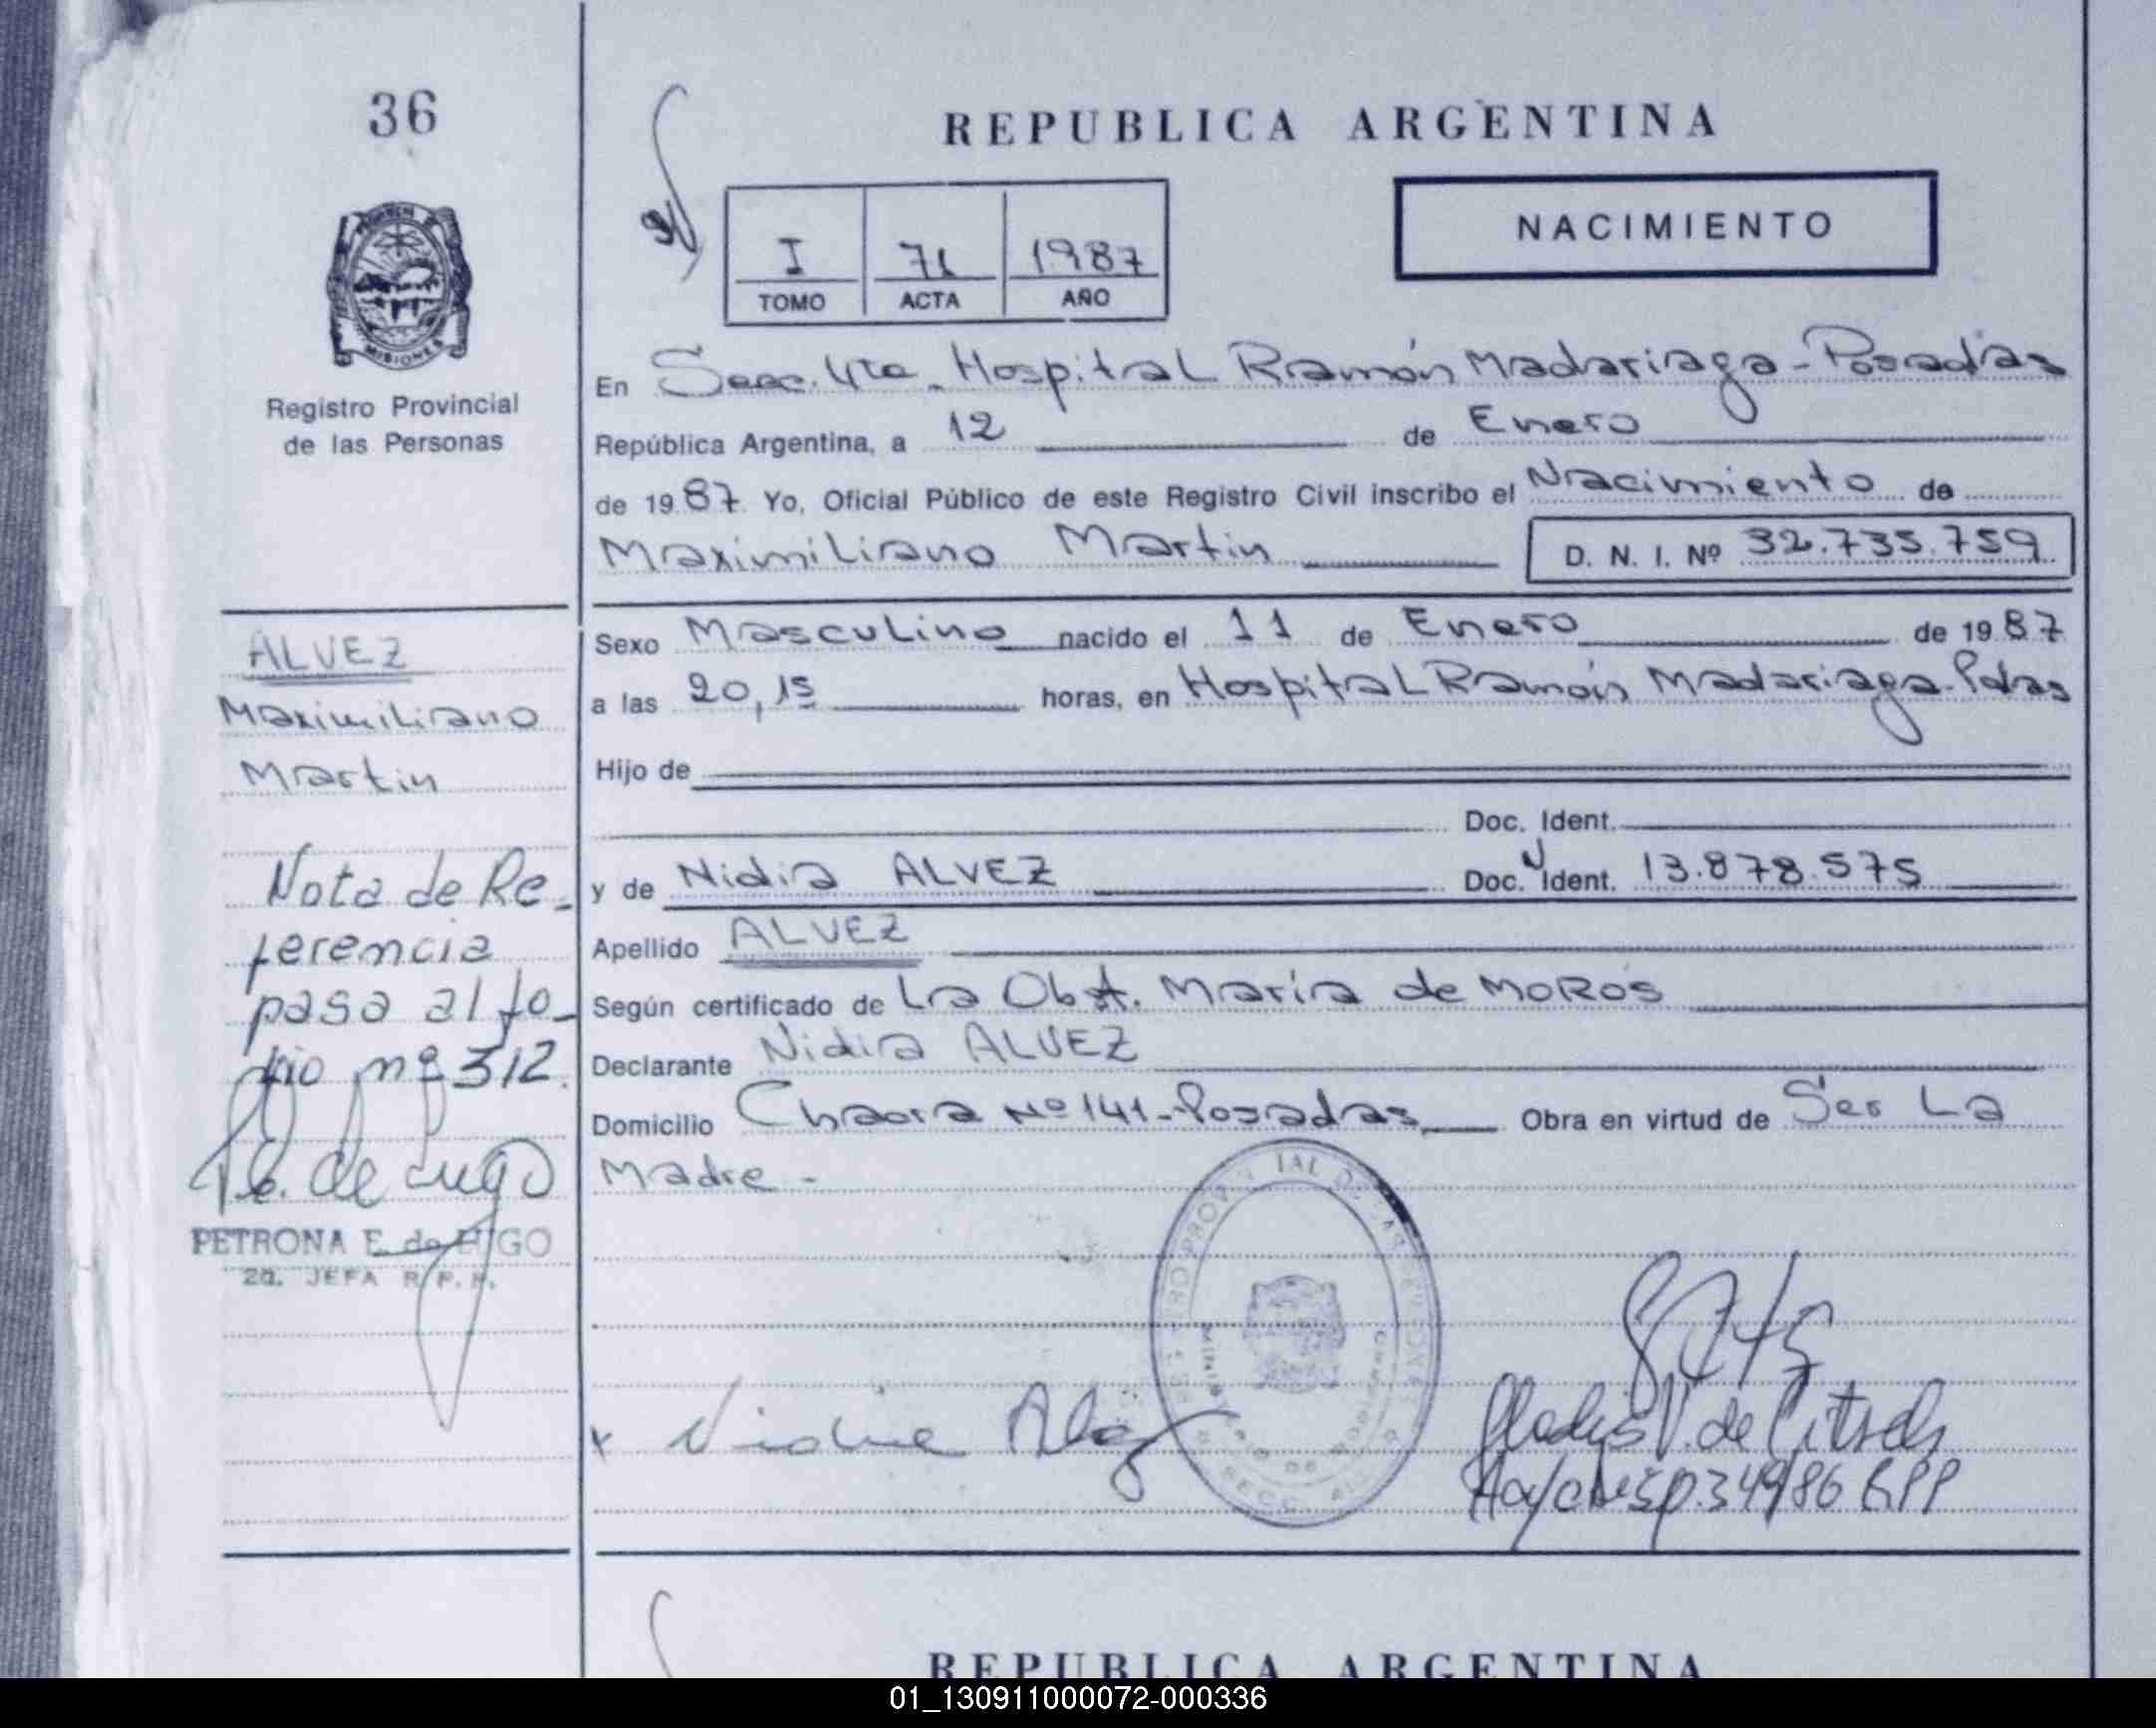 36
REPUBLICA ARGENTINA
NACIMIENTO
I 71 1987
TOMO ACTA AÑO
MISIONES
Registro Provincial
de las Personas
En Secc. 4ta. Hospital Ramón Madariaga - Posadas
República Argentina, a 12 de Enero
de 1987 Yo, Oficial Público de este Registro Civil inscribo el Nacimiento de
Maximiliano Martin D. N. I. Nº 32.735.759
Sexo Masculino nacido el 11 de Enero de 1987
a las 20,15 horas, en Hospital Ramón Madariaga - Pdas
Hijo de
Doc. Ident.
y de Nidia ALVEZ Doc. Ident. 13.878.575
Apellido ALVEZ
Según certificado de La Obst. María de MOROS
Declarante Nidia ALVEZ
Domicilio Chacra Nº 141 - Posadas Obra en virtud de Ser La
Madre -
ALVEZ
Maximiliano
Martin
Nota de Re-
ferencia
pasa al fo-
lio nº 312.
P. E. de Lugo
PETRONA E. de LUGO
2a. JEFA R. P. P.
x Nidia
Gladys V. de
349/86 R.P.P
REPUBLICA ARGENTINA
01_130911000072-000336